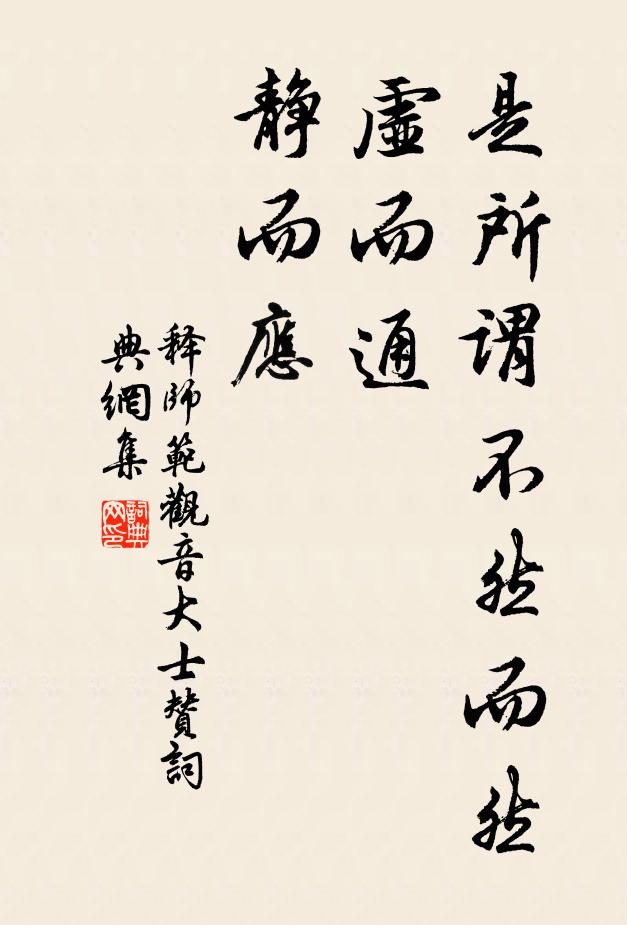 是所謂不然而然
虛而通
靜而應
释師範觀音大士賛詞
典網集
詞典网印